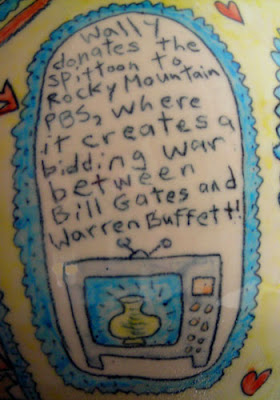 Wally
donates the
spittoon to
Rocky Mountain
PBS, where
it creates a
bidding war
between
Bill Gates and
Warren Buffett!